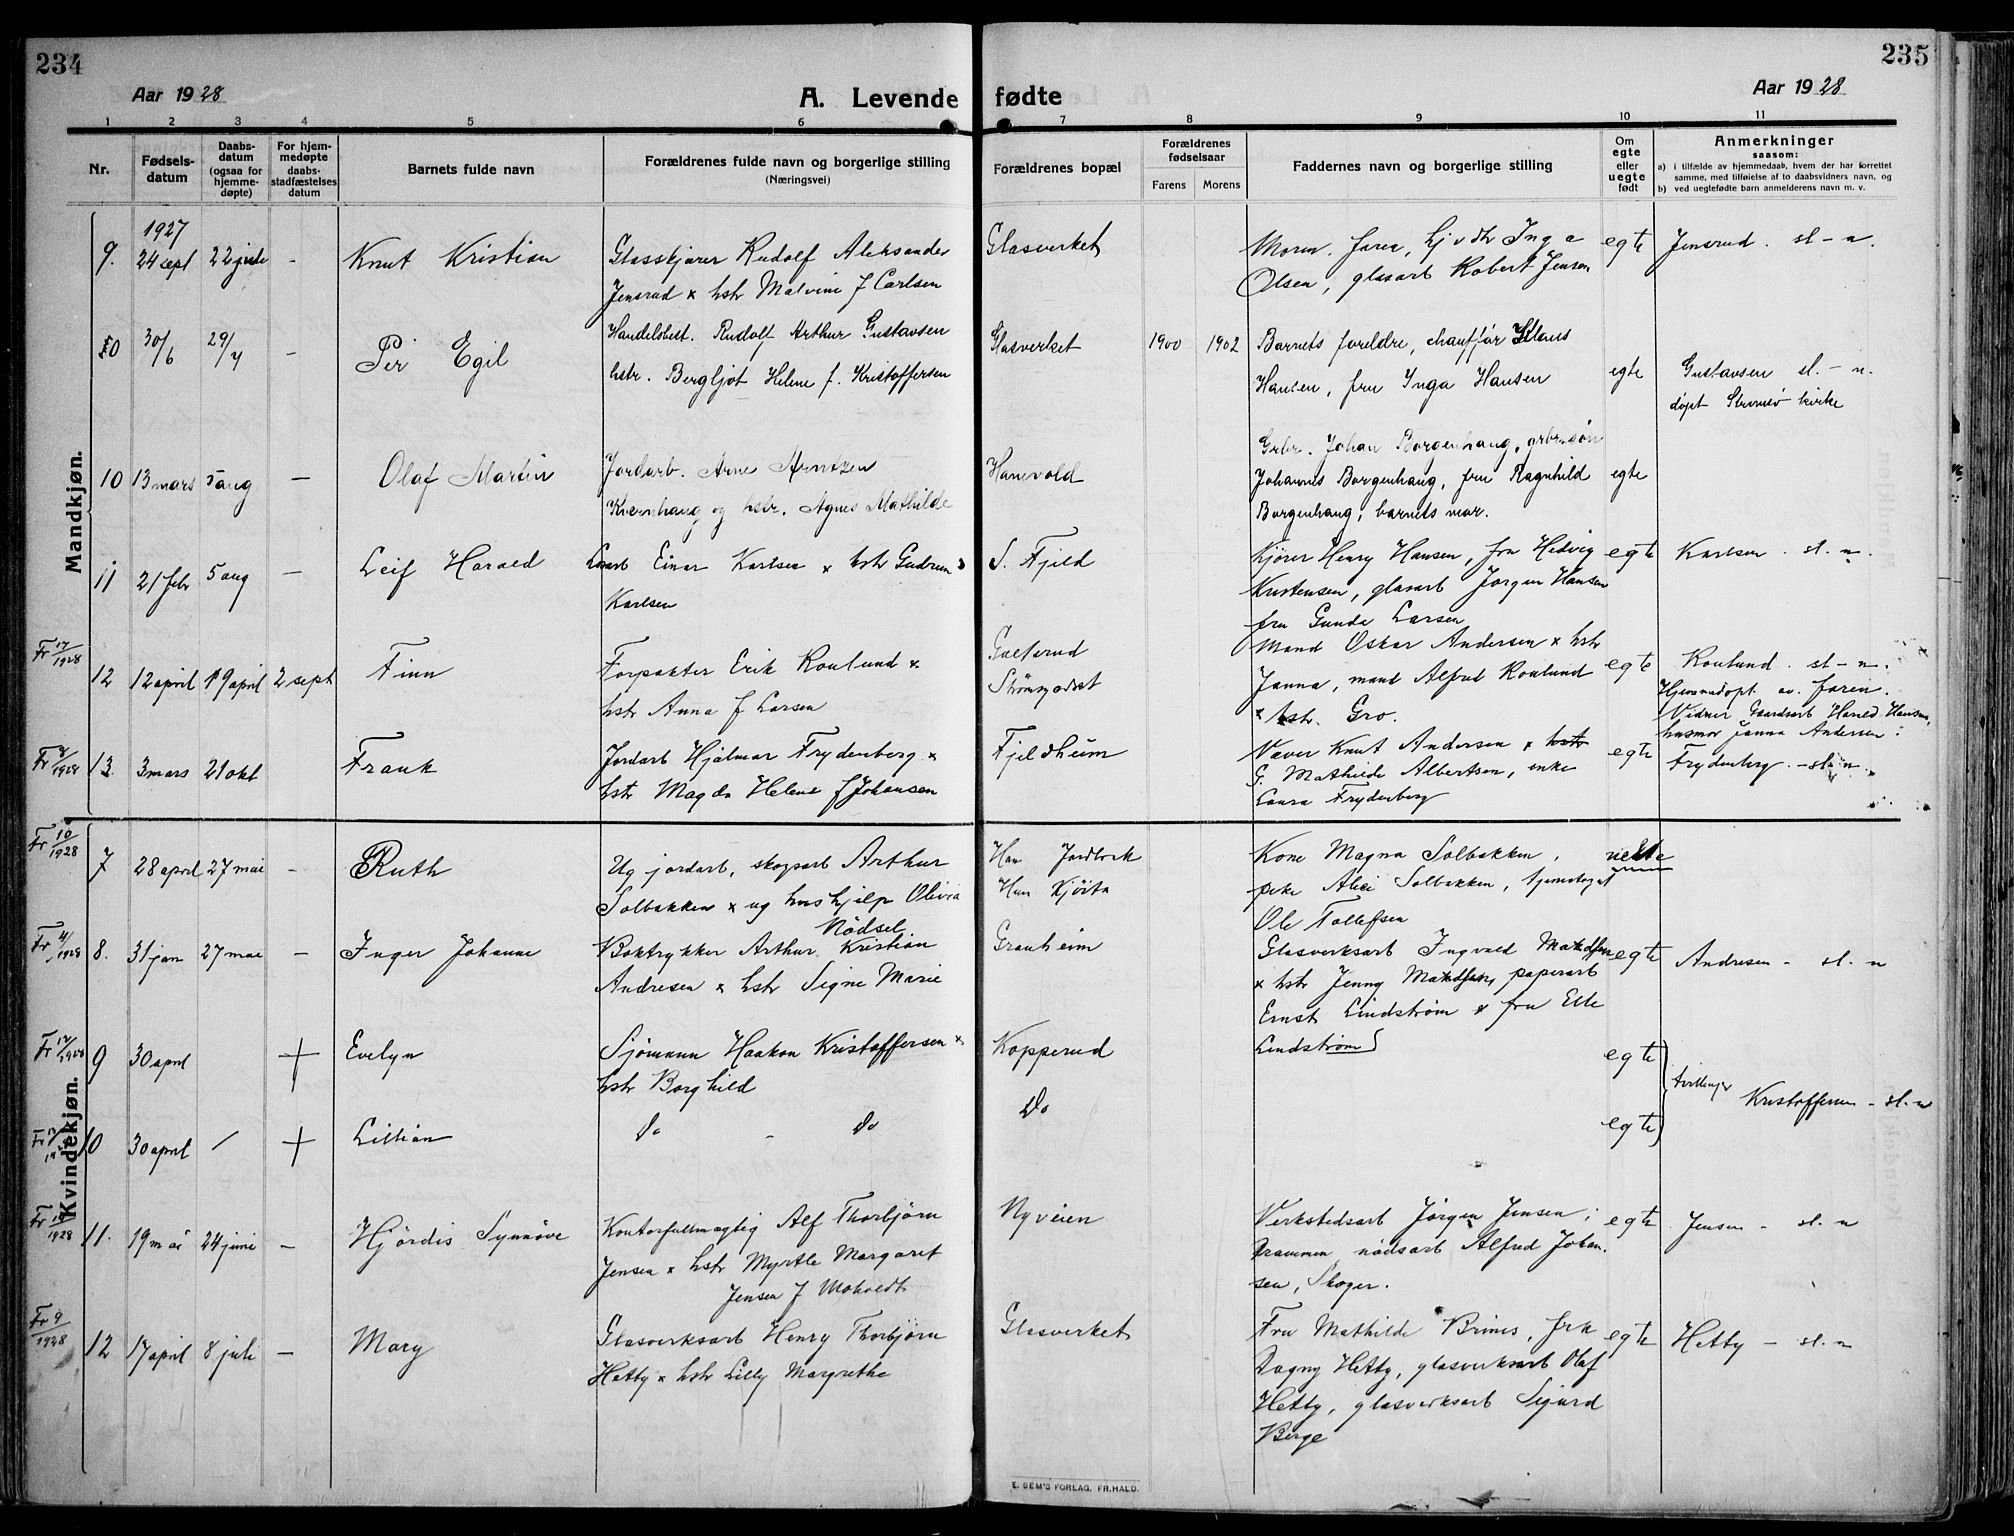 234
235
Aar 1928
A. Levende fødte
Aar 1928
1 2 3 4 5 6 7 8 9 10 11
Nr.
Fødsels-
datum
Daabs-
datum
(ogsaa for
hjemme-
døpte)
For hjem-
medøpte
daabs-
stadfæstelses
datum
Barnets fulde navn
Forældrenes fulde navn og borgerlige stilling
(Næringsvei)
Forældrenes bopæl
Forældrenes
fødselsaar
Farens Morens
Faddernes navn og borgerlige stilling
Om
egte
eller
uegte
født
Anmerkninger
saasom:
a) i tilfælde av hjemmedaab, hvem der har forrettet
samme, med tilføielse av to daabsvidners navn, og
b) ved uegtefødte barn anmelderens navn m. v.
Mandkjøn.
1927
9. 24 sept 22 - Knut Kristian
Glasskjærer Rudolf Aleksander
Jensrud x hstr Malvine f Carlsen
Glasverket
Moren, faren, Inga
Olsen, glasarb Robert Jensen
egte
Jensrud. sl - n.
10 30/6 29/7 - Per Egil
Handelsbest. Rudolf Arthur Gustavsen
hstr. Bergljot Helene f. Kristoffersen
Glasverket
1900 1902
Barnets foreldre, chauffør Klaus
Hansen, fru Inga Hansen
egte
Gustavsen sl. - n.
døpt Strømsø kirke
10 13 mars 5 aug - Olaf Martin
Jordarb. Arne Arntzen
Kvernhaug og hstr. Agnes Mathilde
Hanevold
Grbr. Johan Borgenhaug, grbr.søn
Johannes Borgenhaug, fru Ragnhild
Borgenhaug, barnets mor.
egte
11 21 febr 5 aug - Leif Harald
Einar Karlsen x hstr Gudrun
Karlsen
S. Fjeld
Kjører Henry Hansen, fru Hedvig
Kristensen, glasarb Jørgen Hansen
fru Gunda Larsen
egte
Karlsen. sl. n.
Fr 17/1928
12 12 april 19 april 2 sept Finn
Forpakter Erik Roulund x
hstr Anna f Larsen
Galterud
Mand Oskar Andersen x hstr
Janna, mand Alfred Roulund
x hstr. Gro.
egte
Roulund. sl - n.
Hjemmedøpt av faren.
Vidner Gaardsarb Harald Hansen,
husmor Janna Andersen.
Fr 8/1928
13. 3 mars 21 okt Frank
Jordarb Hjalmar Frydenberg x
hstr Magda Helene f Johansen
Fjeldheim
Væver Knut Andersen x hstr
G. Mathilde Albertsen, enke
Laura Frydenberg
egte
Frydenberg. - sl. n.
Kvindekjøn.
Fr 10/1928
7 28 april 27 mai - Ruth
Ug jordarb, skogsarb Arthur
Solbakken x ug hushjelp Olivia
Nødsel
Han Jordbræk
Hun Kjøsta
Kone Magna Solbakken,
pike Alice Solbakken,
Ole Tollefsen
Fr 4/1928
8. 31 jan 27 mai - Inger Johanne
Boktrykker Arthur Kristian
Andresen x hstr Signe Marie
Granheim
Glasverksarb Ingvald
x hstr Jenny papirarb
Ernst Lindstrøm x fru Elle
Lindstrøm
egte
Andresen - sl. n
Fr 12/1928
9 30 april + Evelyn
Sjømann Haakon Kristoffersen x
hstr Borghild
Kopperud
egte
tvillinger
Kristoffersen - sl. n
10 30 april / + Lillian
Do - Do
Do
egte
11. 19 mai 24 juni - Hjørdis Synnøve
Kontorfullmægtig Alf Thorbjørn
Jensen x hstr Myrtle Margaret
Jensen f Moholdt
Nyveien
Verkstedsarb Jørgen Jensen;
Drammen, nødsarb Alfred Johan-
sen, Skoger.
egte
Jensen - sl. n
Fr 9/1928
12 17 april 8 juli - Mary
Glasverksarb Henry Thorbjørn
Hetty x hstr Lilly Margrethe
Glasverket
Fru Mathilde Brines, frk
Dagny Hetty, glasverksarb Olaf
Hetty, glasverksarb Sigurd
Berge
egte
Hetty - sl. n
E. SEM'S FORLAG, FR.HALD.